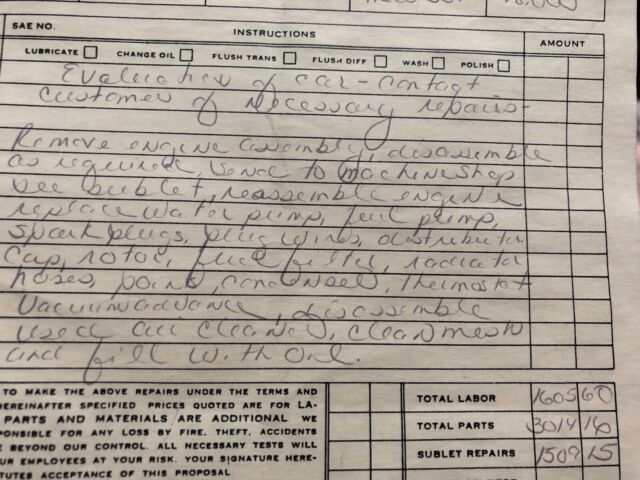 SAE NO. INSTRUCTIONS AMOUNT
LUBRICATE CHANGE OIL FLUSH TRANS FLUSH DIFF WASH POLISH
Evaluation of car - contact
customer of necessary repairs -
Remove engine assembly, disassemble
as required, send to machine shop
see sublet, reassemble engine
replace water pump, fuel pump,
spark plugs, plug wires, distributor
cap, rotor, fuel filter, radiator
hoses, points, condenser, thermostat
vacuum advance, disassemble
used air cleaner, clean mesh
and fill with oil.
TO MAKE THE ABOVE REPAIRS UNDER THE TERMS AND
HEREINAFTER SPECIFIED PRICES QUOTED ARE FOR LA-
PARTS AND MATERIALS ARE ADDITIONAL. WE
PONSIBLE FOR ANY LOSS BY FIRE, THEFT, ACCIDENTS
BEYOND OUR CONTROL. ALL NECESSARY TESTS WILL
UR EMPLOYEES AT YOUR RISK. YOUR SIGNATURE HERE-
TUTES ACCEPTANCE OF THIS PROPOSAL.
TOTAL LABOR 1605 60
TOTAL PARTS 3014 16
SUBLET REPAIRS 1509 15